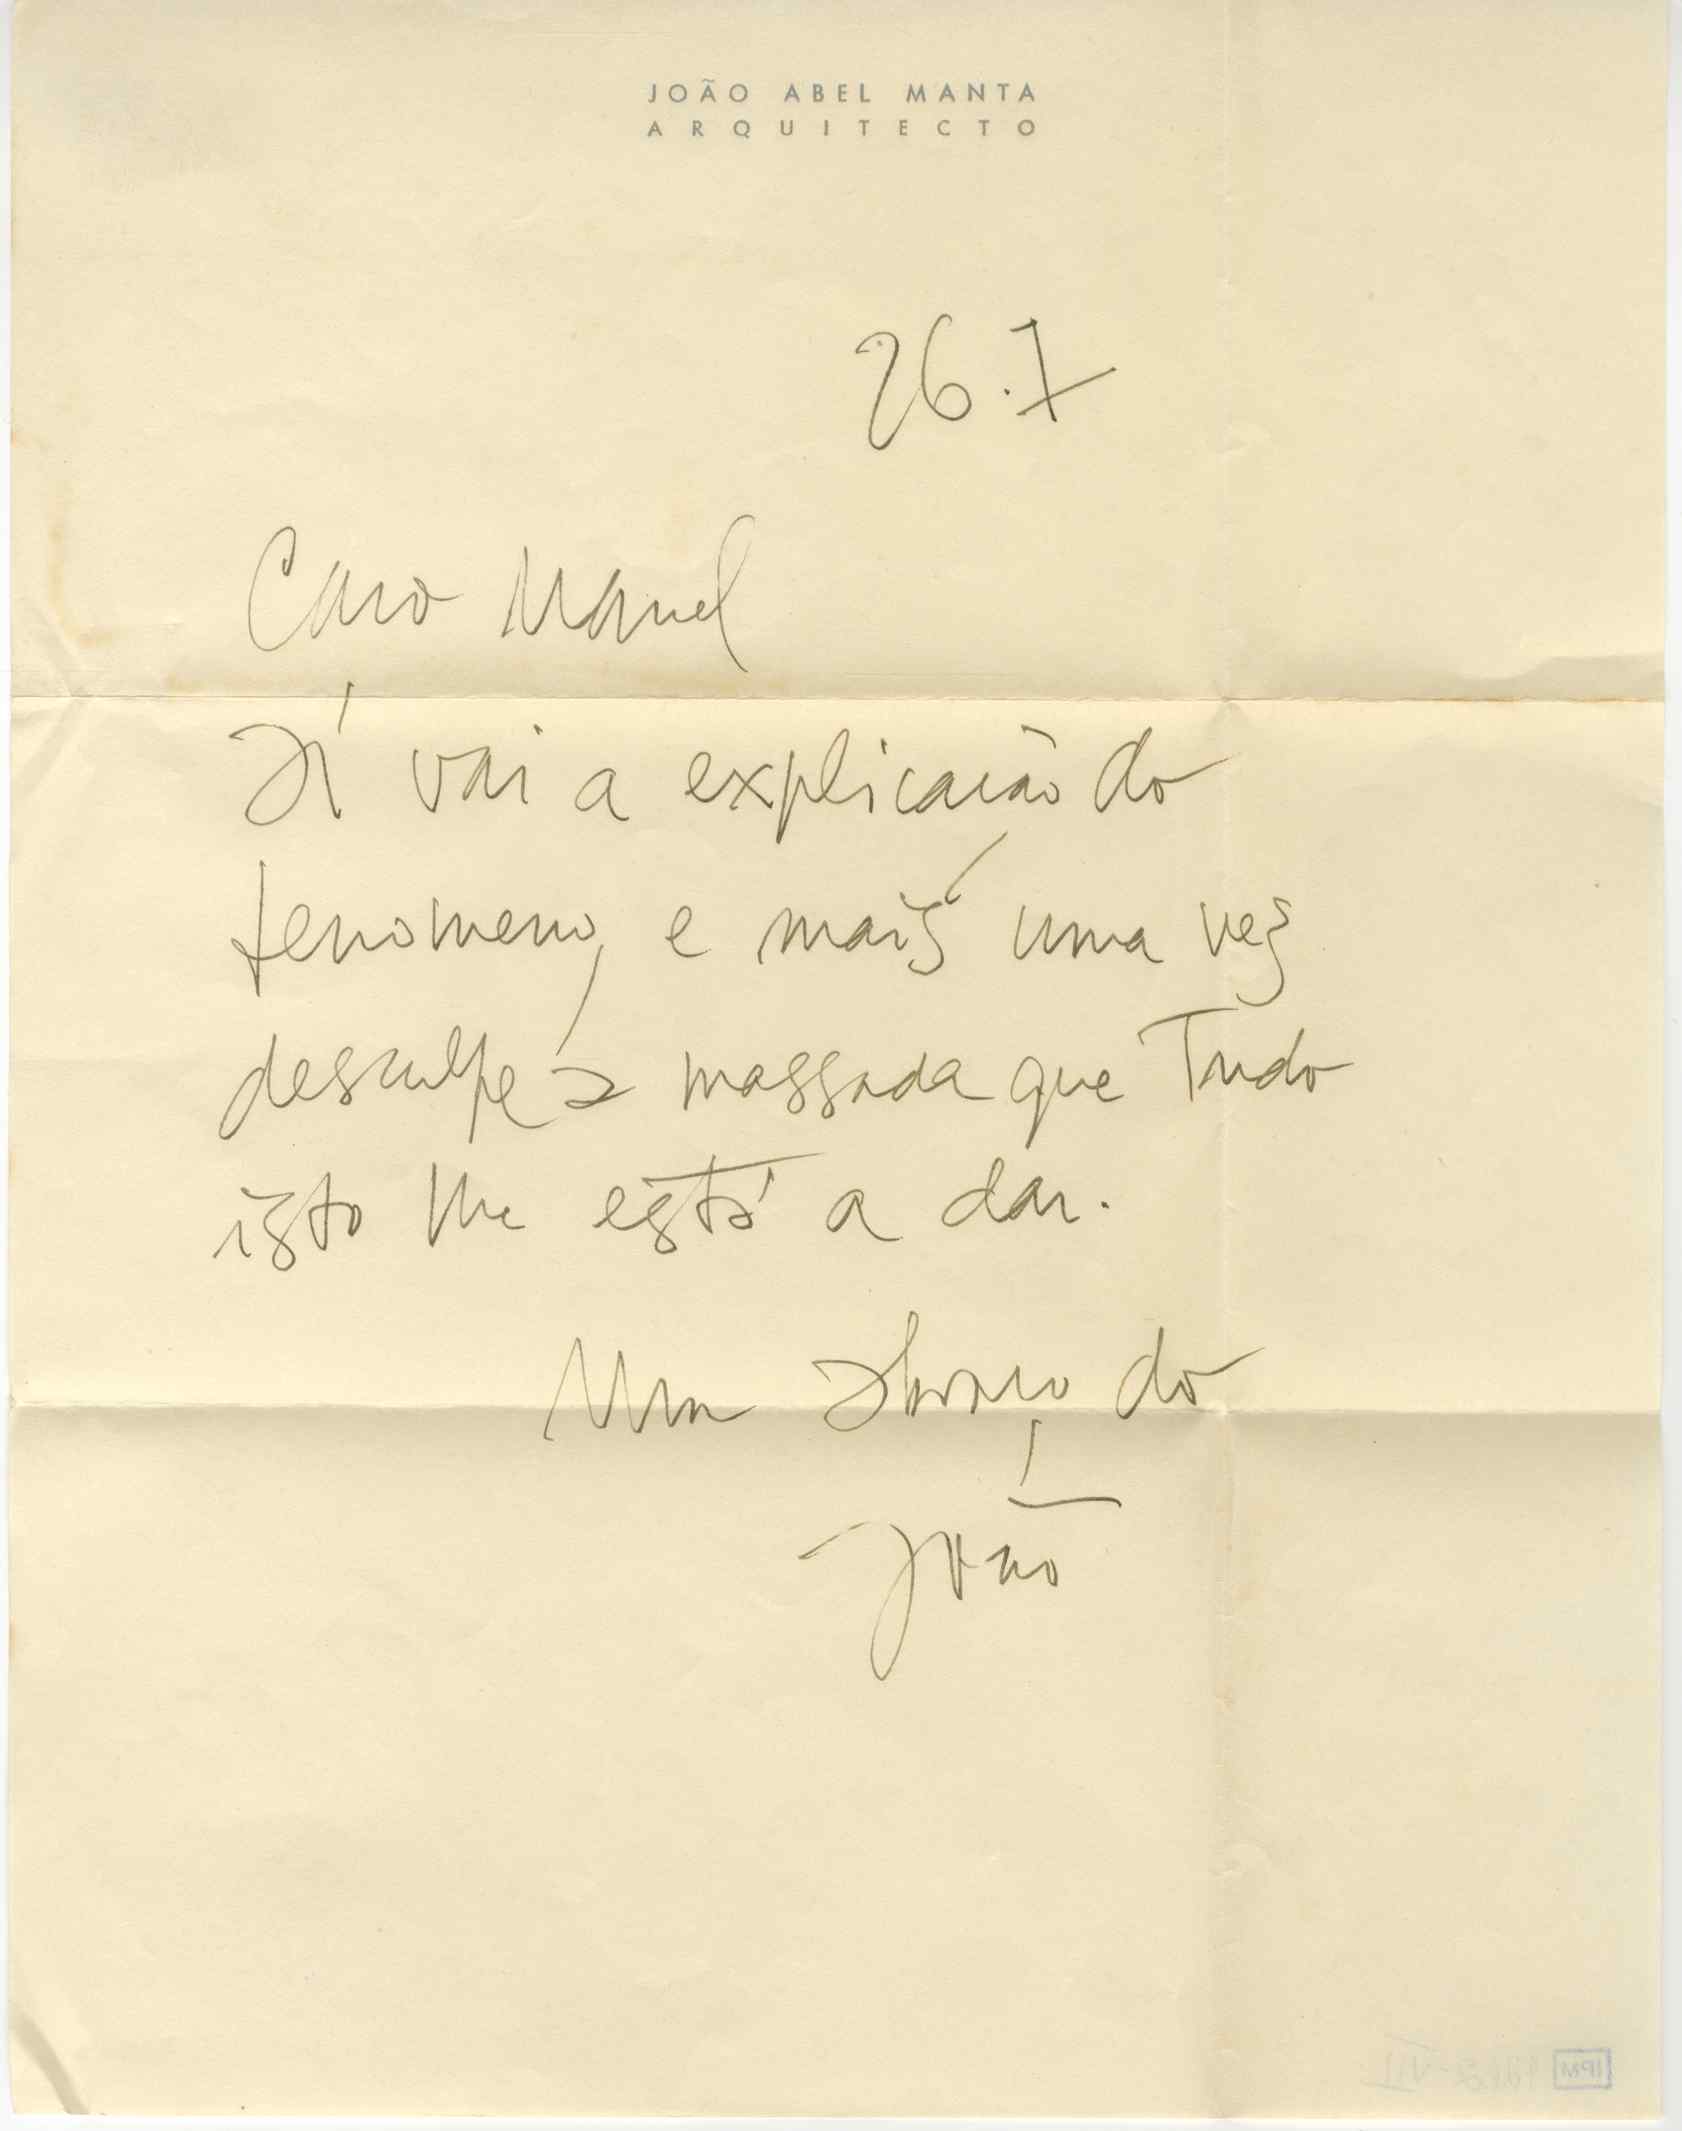 JOÃO ABEL MANTA
ARQUITECTO
26.7
Caro Manel
Aí vai a explicação do
fenomeno, e mais uma vez
desculpe a massada que tudo
isto lhe está a dar.
Um abraço do
João
IPM